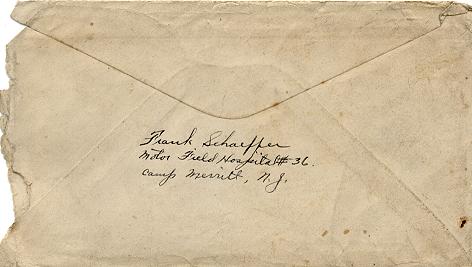 Frank Schaeffer
Motor Field Hospital # 36.
Camp Merritt, N.J.